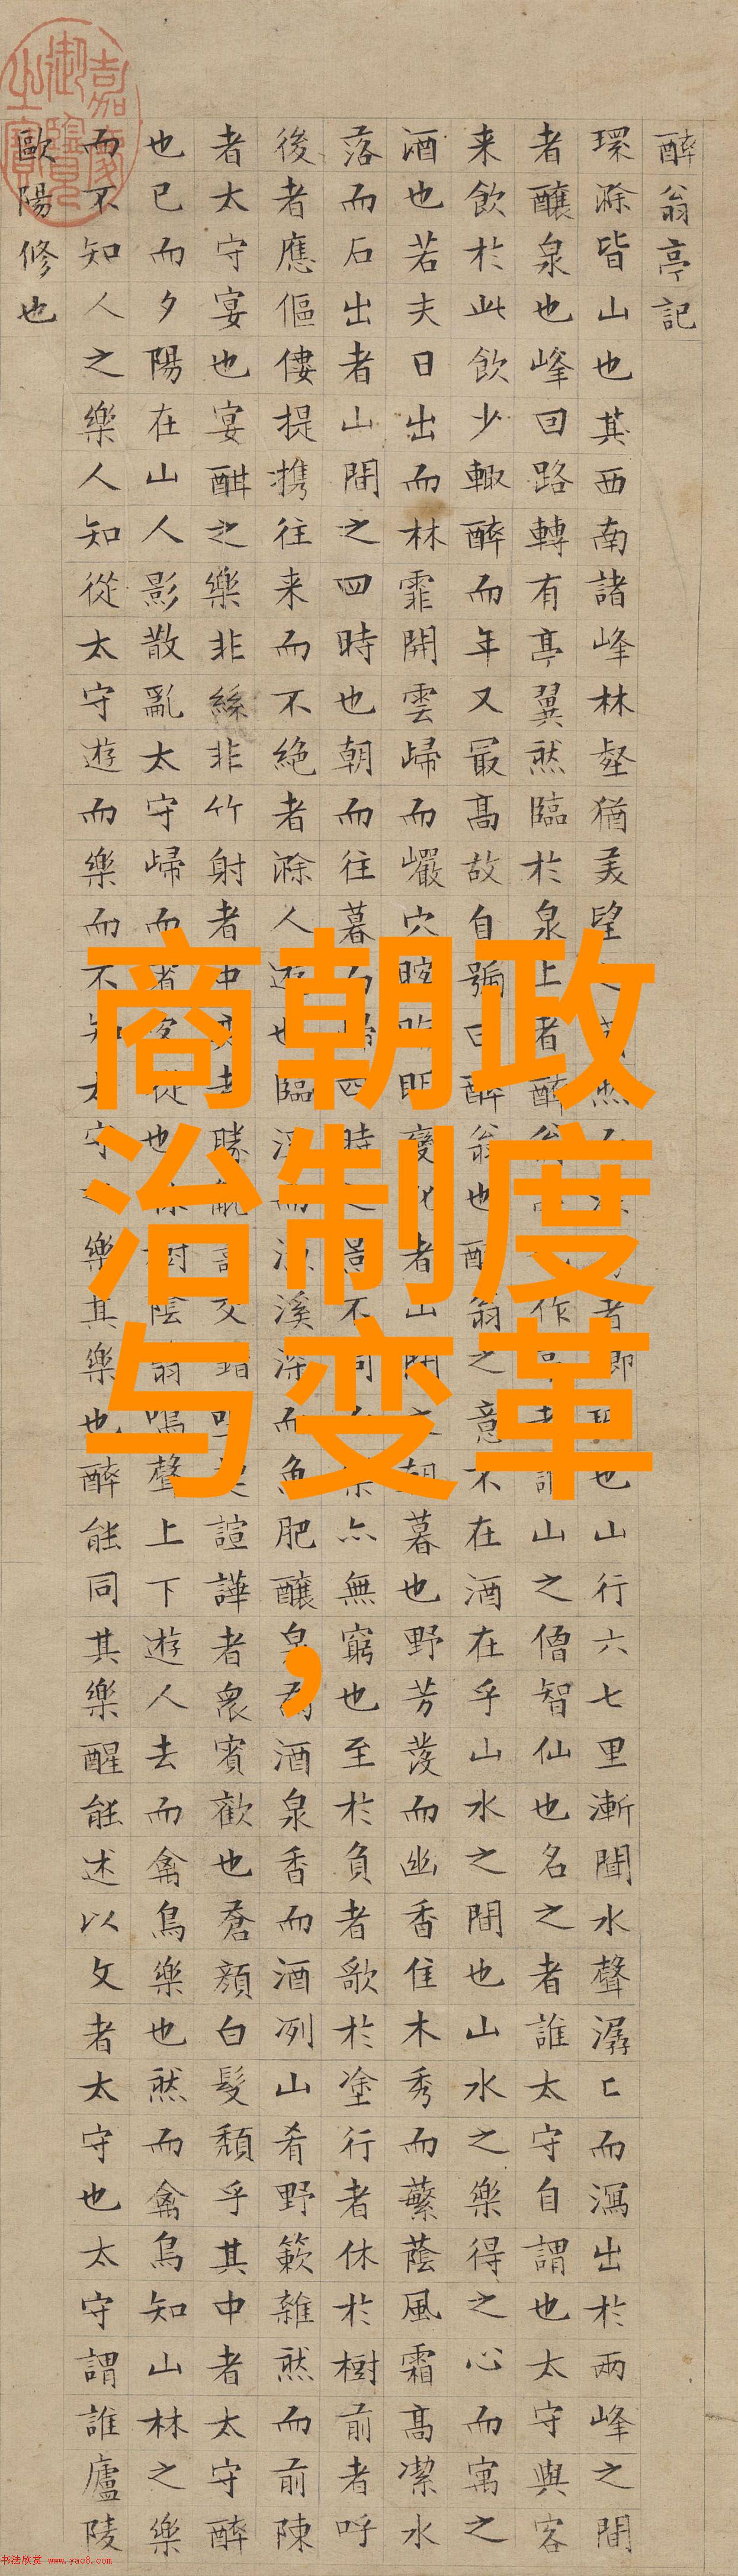 醉翁亭記
環滁皆山也其西南諸峰林壑猶美望者也山行六七里漸聞水聲潺〻而瀉出於兩峰之間
者釀泉也峰回路轉有亭翼然臨於泉上者醉翁作山之僧智仙也名之者誰太守自謂也太守與客
来飲於此飲少輙醉而年又最高故自號曰醉翁也醉翁之意不在酒在乎山水之間也山水之樂得之心而寓之
酒也若夫日出而林霏開雲歸而巖穴暝晦明變化者山間之朝暮也野芳發而幽香佳木秀而蘩蔭風霜高潔水
落而石出者山間之四時也朝而往暮而歸四時之景不同而樂亦無窮也至於負者歌於塗行者休於樹前者呼
後者應傴僂提携往来而不絶者滁人遊也臨溪而漁溪深而魚肥釀泉為酒泉香而酒冽山肴野簌雜然而前陳
者太守宴也宴酣之樂非絲非竹射者中奕者勝觥籌交錯諠譁者衆賓歡也蒼顔白髮頹乎其中者太守醉
也已而夕陽在山人影散亂太守歸而賓客從也樹陰翳鳴聲上下遊人去而禽鳥樂也然而禽鳥知山林之樂
而不知人之樂人知從太守遊而樂而不知太守之樂其樂也醉能同其樂醒能述以文者太守也太守謂誰廬陵
歐陽修也
嘉慶御覽之寶
商朝政
治制度
与变革
，
书法欣赏 www.yac8.com